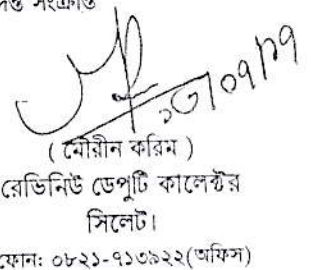 সংক্রান্ত
( মৌরীন করিম )
রেভিনিউ ডেপুটি কালেক্টর
সিলেট।
ফোন: ০৮২১-৭১৩৯২২(অফিস)